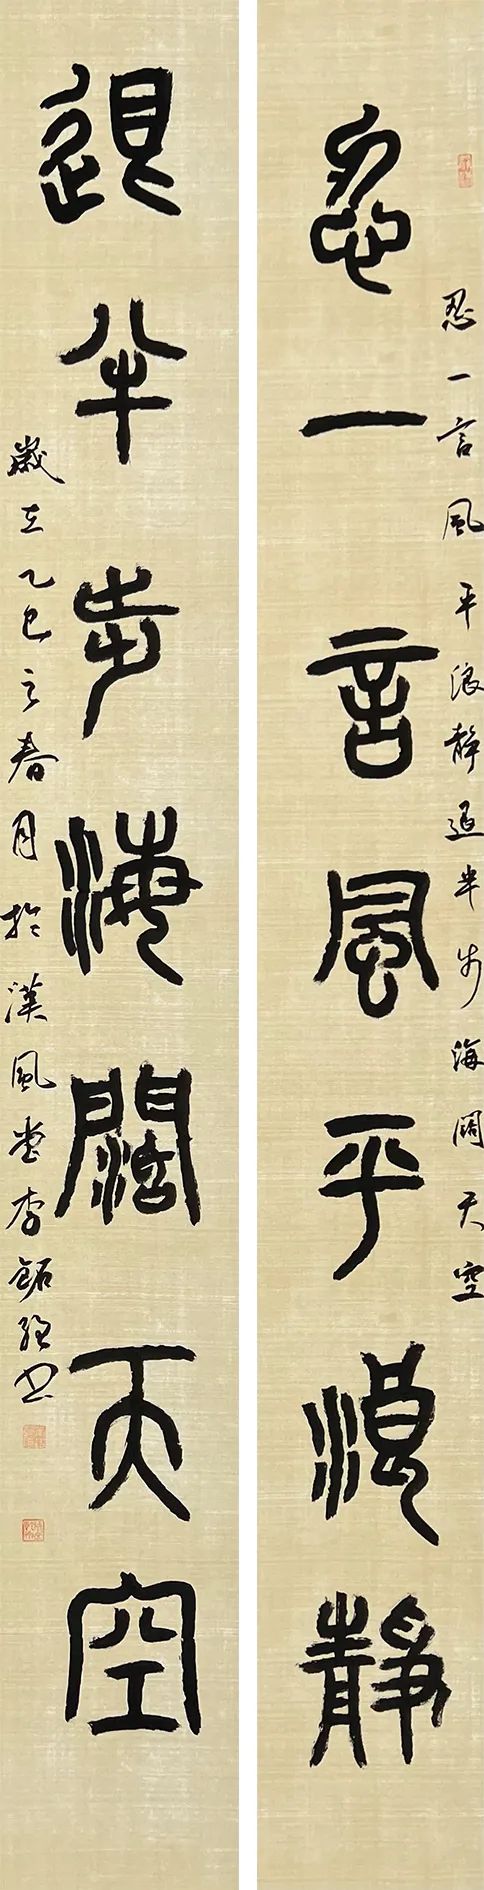 忍一言風平浪靜退半步海闊天空
忍一言風平浪靜
退半步海闊天空
歲在乙巳之春月於漢風堂李鉐書